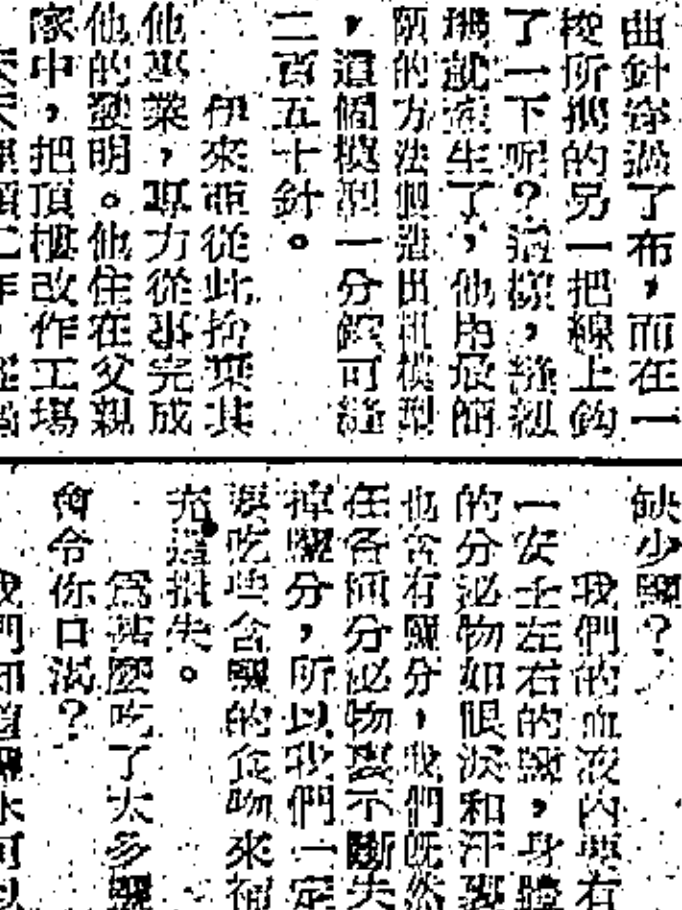 曲針穿過了布，而在一
梭所携的另一把線上鈎
了一下呢？這樣，縫紉
機就產生了，他用最簡
陋的方法製造出机模型
，這個模型一分鐘可縫
二百五十針。
伊來亞從此捨棄其
他事業，專力從事完成
他的發明。他住在父親
家中，把頂樓改作工場
缺少鹽？
我們的血液內
一安士左右的鹽，身體
的分泌物如眼淚和汗
也含有鹽分，我們既然
在各種分泌物裏不斷失
掉鹽分，所以我們一定
要吃些含鹽的食物來補
充這損失。
爲甚麼吃了太多鹽
會令你口渴？
我們知道鹽水可以